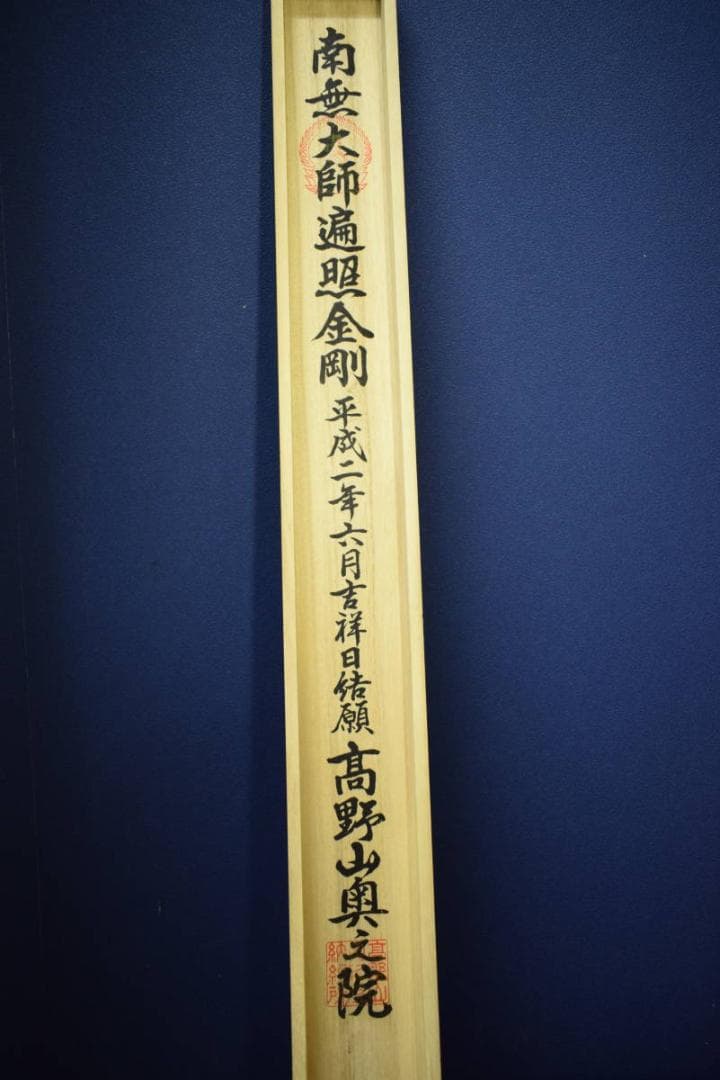 南無大師遍照金剛 平成二年六月吉祥日結願 髙野山奥之院